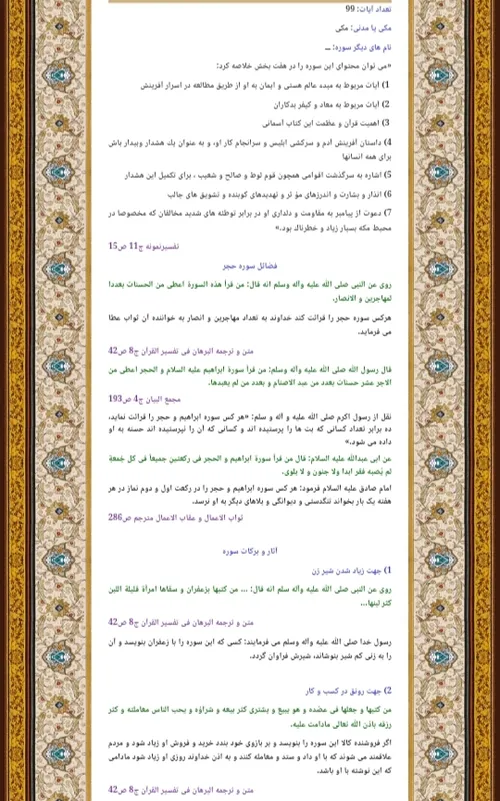 تعداد آیات: 99
مکی یا مدنی: مکی
نام های دیگر سوره: ــ
«می توان محتوای این سوره را در هفت بخش خلاصه کرد:
1) آیات مربوط به مبدء عالم هستی و ایمان به او از طریق مطالعه در اسرار آفرینش
2) آیات مربوط به معاد و کیفر بدکاران
3) اهمیت قرآن و عظمت این کتاب آسمانی
4) داستان آفرینش آدم و سرکشی ابلیس و سرانجام کار او، و به عنوان یك هشدار وبیدار باش
برای همه انسانها
5) اشاره به سرگذشت اقوامی همچون قوم لوط و صالح و شعیب ، برای تکمیل این هشدار
6) انذار و بشارت و اندرزهای مؤ ثر و تهدیدهای کوبنده و تشویق های جالب
7) دعوت از پیامبر به مقاومت و دلداری او در برابر توطئه های شدید مخالفان که مخصوصا در
محیط مکه بسیار زیاد و خطرناك بود.»
تفسیرنمونه ج11 ص15
فضائل سوره حجر
روی عن النبی صلی الله علیه وآله وسلم انه قال: من قرأ هذه السورة اعطی من الحسنات بعددا
لمهاجرین و الانصار.
هرکس سوره حجر را قرائت کند خداوند به تعداد مهاجرین و انصار به خواننده آن ثواب عطا
می فرماید.
متن و ترجمه البرهان فی تفسیر القرآن ج8 ص42
قال رسول الله صلی الله علیه وآله وسلم: من قرأ سورة ابراهیم علیه السلام و الحجر اعطی من
الاجر عشر حسنات بعدد من عبد الاصنام و بعدد من لم یعبدها.
مجمع البیان ج4 ص193
نقل از رسول اکرم صلی الله علیه و آله و سلم: «هر کس سوره ابراهیم و حجر را قرائت نماید،
ده برابر تعداد کسانی که بت ها را پرستیده اند و کسانی که آن را نپرستیده اند حسنه به او
داده می شود.»
عن ابی عبدالله علیه السلام: قال من قرأ سورة ابراهیم و الحجر فی رکعتین جمیعاً فی کل جُمعةٍ
لم یُصبه فقر ابدا ولا جنون و لا بلوی.
امام صادق علیه السلام فرمود: هر کس سوره ابراهیم و حجر را در رکعت اول و دوم نماز در هر
هفته یک بار بخواند تنگدستی و دیوانگی و بلاهای دیگر به او نرسد.
ثواب الاعمال و عقاب الاعمال مترجم ص286
آثار و برکات سوره
1) جهت زیاد شدن شیر زن
روی عن النبی صلی الله علیه وآله سلم انه قال: ... من کتبها بزعفران و سقاها امرأة قلیلة اللبن
کثر لبنها...
متن و ترجمه البرهان فی تفسیر القرآن ج8 ص42
رسول خدا صلی الله علیه وآله وسلم می فرمایند: کسی که این سوره را با زعفران بنویسد و آن
را به زنی کم شیر بنوشاند، شیرش فراوان گردد.
2) جهت رونق در کسب و کار
من کتبها و جعلها فی عضده و هو یبیع و یشتری کثر بیعه و شراؤه و یحب الناس معاملته و کثر
رزقه باذن الله تعالی مادامت علیه.
اگر فروشنده کالا این سوره را بنویسد و بر بازوی خود بندد خرید و فروش او زیاد شود و مردم
علاقمند می شوند که با او داد و ستد و معامله کنند و به اذن خداوند روزی او زیاد شود مادامی
که این نوشته با او باشد.
متن و ترجمه البرهان فی تفسیر القرآن ج8 ص42